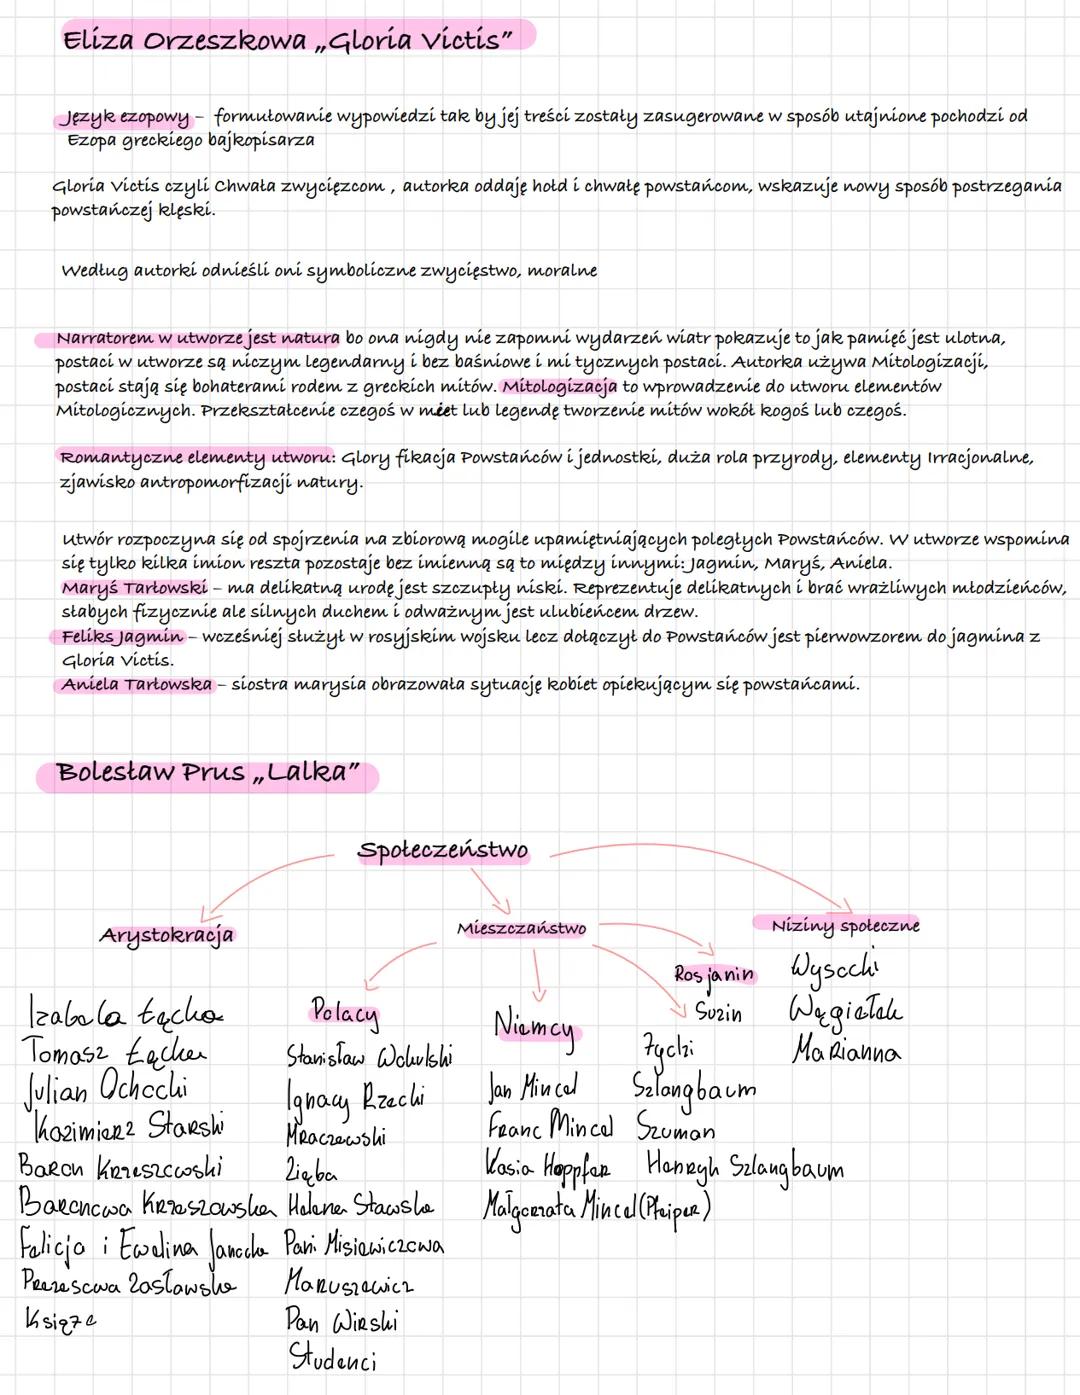 Eliza Orzeszkowa „Gloria Victis”
Język ezopowy – formułowanie wypowiedzi tak by jej treści zostały zasugerowane w sposób utajnione pochodzi od
Ezopa greckiego bajkopisarza
Gloria Victis czyli Chwała zwycięzcom , autorka oddaję hołd i chwałę powstańcom, wskazuje nowy sposób postrzegania
powstańczej klęski.
Według autorki odnieśli oni symboliczne zwycięstwo, moralne
Narratorem w utworze jest natura bo ona nigdy nie zapomni wydarzeń wiatr pokazuje to jak pamięć jest ulotna,
postaci w utworze są niczym legendarny i bez baśniowe i mi tycznych postaci. Autorka używa Mitologizacji,
postaci stają się bohaterami rodem z greckich mitów. Mitologizacja to wprowadzenie do utworu elementów
Mitologicznych. Przekształcenie czegoś w lub legendę tworzenie mitów wokół kogoś lub czegoś.
Romantyczne elementy utworu: Glory fikacja Powstańców i jednostki, duża rola przyrody, elementy Irracjonalne,
zjawisko antropomorfizacji natury.
Utwór rozpoczyna się od spojrzenia na zbiorową mogile upamiętniających poległych Powstańców. W utworze wspomina
się tylko kilka imion reszta pozostaje bez imienną są to między innymi: Jagmin, Maryś, Aniela.
Maryś Tarłowski – ma delikatną urodę jest szczupły niski. Reprezentuje delikatnych i brać wrażliwych młodzieńców,
słabych fizycznie ale silnych duchem i odważnym jest ulubieńcem drzew.
Feliks Jagmin – wcześniej służył w rosyjskim wojsku lecz dołączył do Powstańców jest pierwowzorem do jagmina z
Gloria Victis.
Aniela Tarłowska – siostra marysia obrazowała sytuację kobiet opiekującym się powstańcami.
Bolesław Prus „Lalka”
Społeczeństwo
Arystokracja
Izabela Łęcka
Tomasz Łęcki
Julian Ochocki
Kazimierz Starski
Baron Krzeszowski
Baronowa Krzeszowska
Felicja i Ewelina Janocka
Prezesowa Zasławska
Książe
Mieszczaństwo
Polacy
Stanisław Wokulski
Ignacy Rzecki
Mraczewski
Zięba
Helena Stawska
Pani Misiewiczowa
Maruszewicz
Pan Wirski
Studenci
Niemcy
Jan Mincel
Franc Mincel
Kasia Hoppfer
Małgorzata Mincel (Pfeiper)
Rosjanin
Suzin
Żydzi
Szlangbaum
Szuman
Henryk Szlangbaum
Niziny społeczne
Wysocki
Węgiełek
Marianna